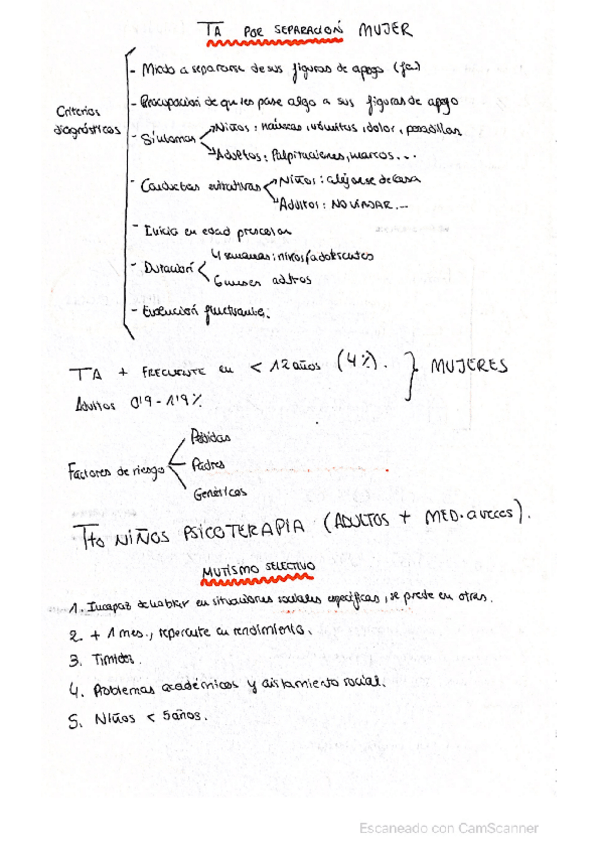 TA POR SEPARACIÓN MUJER
Criterios diagnósticos
- Miedo a separarse de sus figuras de apego
- Preocupación de que les pase algo a sus figuras de apego
- Síntomas
Niños: náuseas, vómitos, dolor, pesadillas
Adultos: Palpitaciones, mareos...
- Conductas evitativas
Niños: alejarse de casa
Adultos: NO VIAJAR...
- Inicio en edad preescolar
- Duración
4 semanas: niños/adolescentes
6 meses adultos
- Evolución fluctuante.
TA + FRECUENTE en < 12 años (4%).
Adultos 0'9 - 1'9%
} MUJERES
Factores de riesgo
Pérdidas
Padres
Genéticos
Tto NIÑOS PSICOTERAPIA (ADULTOS + MED. a veces).
MUTISMO SELECTIVO
1. Incapaz de hablar en situaciones sociales específicas, se puede en otras.
2. + 1 mes, repercute en rendimiento.
3. Timidez.
4. Problemas académicos y aislamiento social.
5. Niños < 5 años.
Escaneado con CamScanner